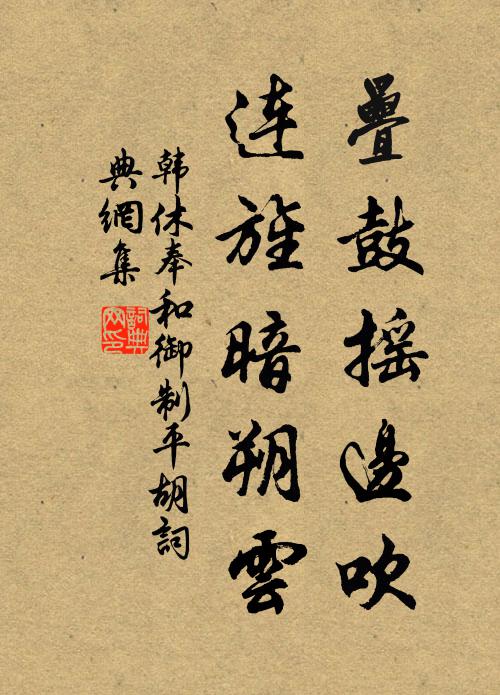 疊鼓搖邊吹
連旌暗朔雲
韩休奉和御制平胡詞
典網集
詞典網印